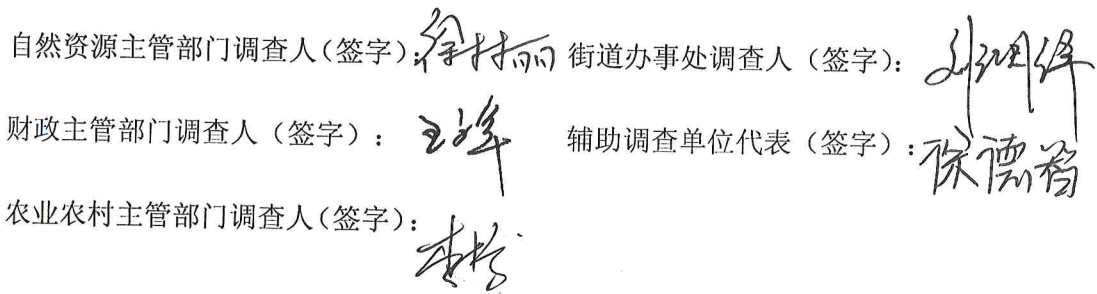 自然资源主管部门调查人(签字): 街道办事处调查人（签字）:
财政主管部门调查人（签字）: 辅助调查单位代表（签字）:徐德智
农业农村主管部门调查人(签字):